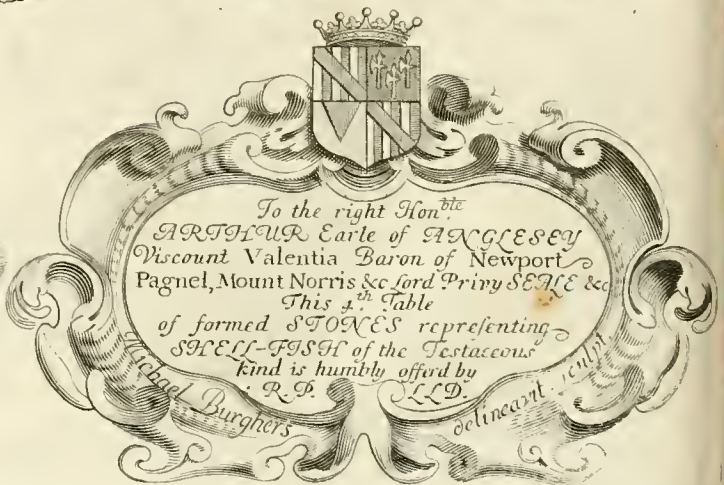 To the right Hon.ble
ARTHUR Earle of ANGLESEY
Viscount Valentia Baron of Newport
Pagnel, Mount Norris &c Lord Privy SEALE &c
This 4th. Table
of formed STONES repreſenting
SHELL-FISH of the Testaceous
kind is humbly offerd by
R.P. LLD.
Michael Burghers delineavit. sculpt.